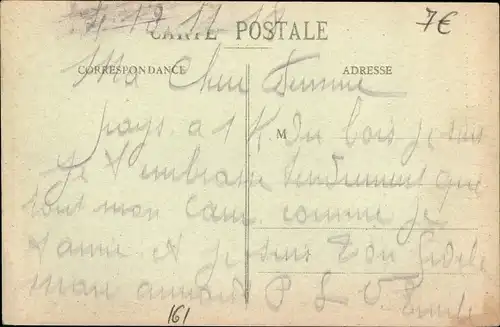 7€
CARTE POSTALE
CORRESPONDANCE
ADRESSE
Ma Chere Femme
pays a 1 K du bois je suis
M
Je t'embrasse tendrement que
tout mon cœur comme je
t'aime et je suis ton fidele
mon amour P L V
161